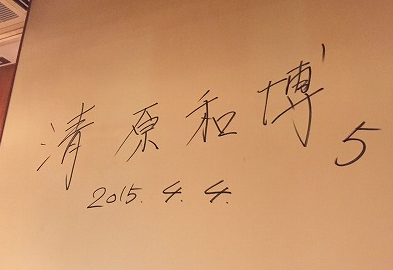 清原和博 5
2015. 4. 4.